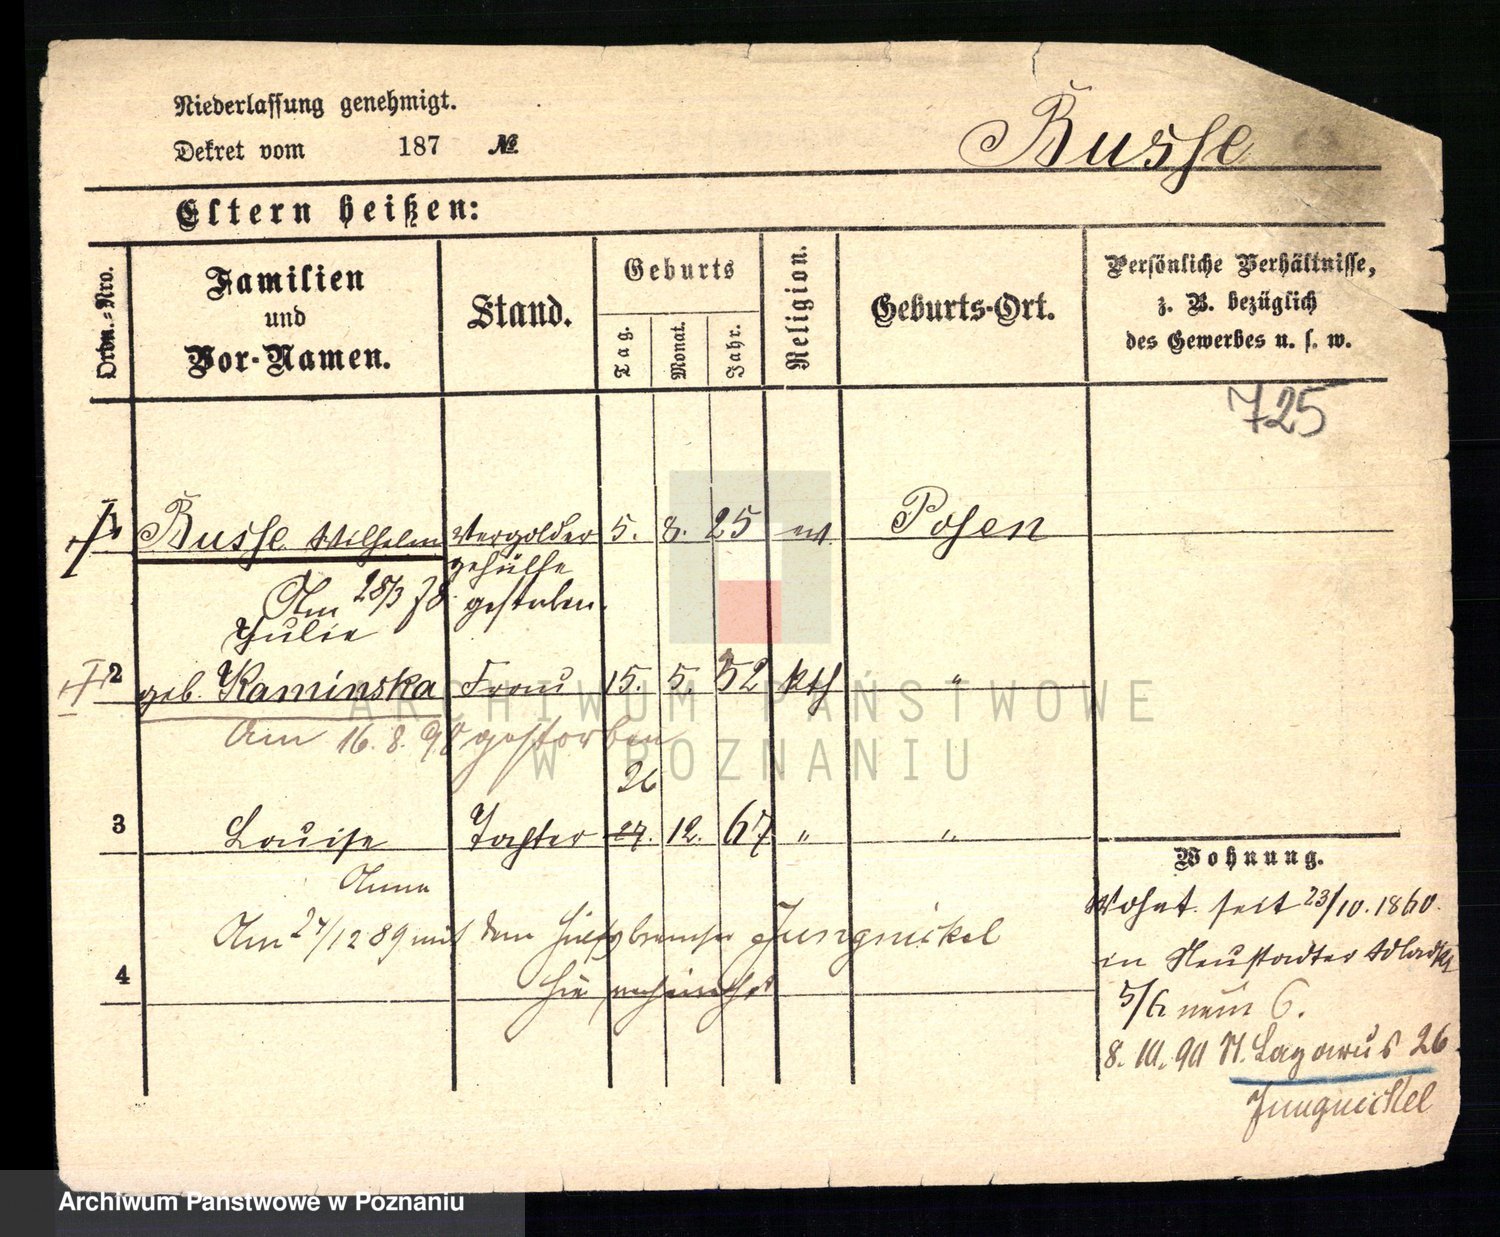 Niederlassung genehmigt.
Dekret vom 187 №
Busse
Eltern heißen:
Ordn.-Nro.
Familien
und
Vor-Namen.
Stand.
Geburts
Tag.
Monat.
Jahr.
Religion.
Geburts-Ort.
Persönliche Verhältnisse,
z. B. bezüglich
des Gewerbes u. s. w.
725
1 Busse Wilhelm Vergolder 5. 8. 25 ev. Posen
gehülfe
Am 28/3 78 gestorben.
Julie
2 geb. Kaminska Frau 15. 5. 32 kth "
Am 16. 8. 90 gestorben
26
3 Louise Tochter 27. 12. 67 " "
Anna
Am 27/12 89 mit dem Hülfsbremser Jungnickel
4 hie verheirathet
Wohnung.
Wohnt seit 23/10. 1860.
in Neustädter
5/6 neu 6.
8. 10. 90 St. Lazarus 26
Jungnickel
ARCHIWUM PAŃSTWOWE
W POZNANIU
Archiwum Państwowe w Poznaniu